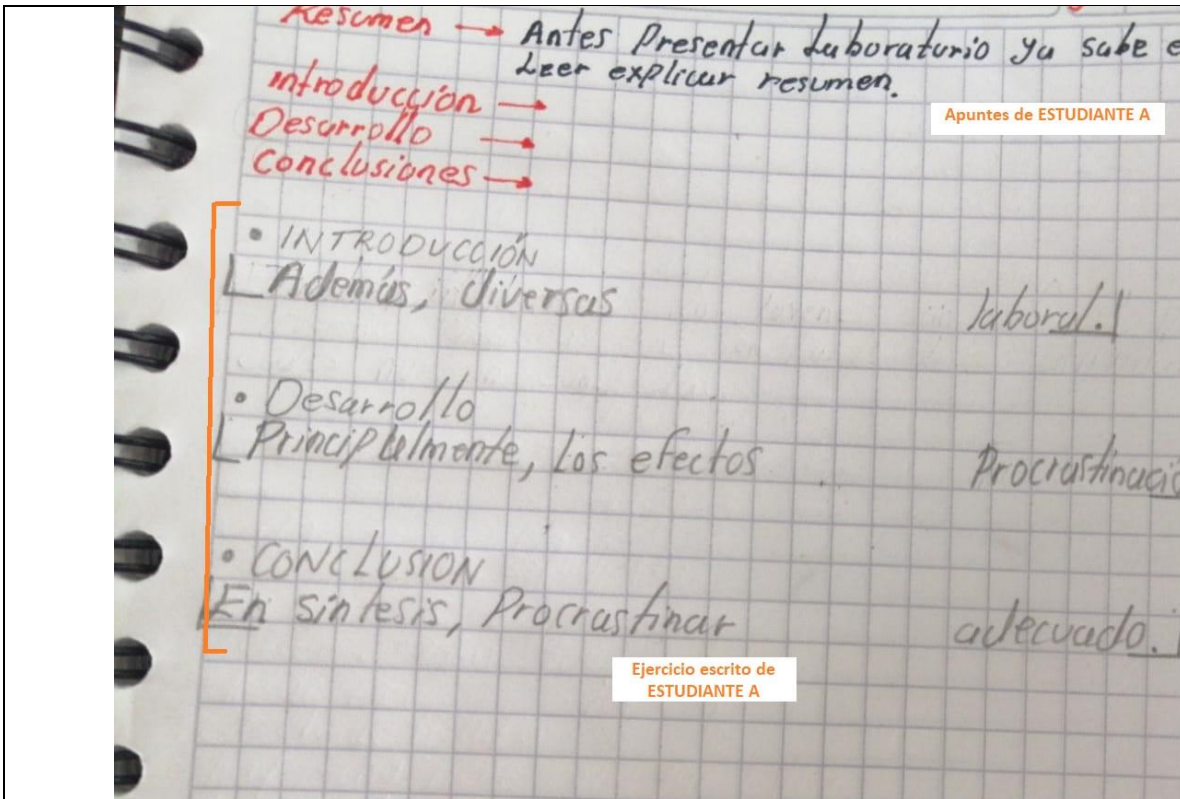 Resumen → Antes Presentar Laboratorio ya sabe e
Leer explicar resumen.
introducción →
Apuntes de ESTUDIANTE A
Desarrollo →
Conclusiones →
• INTRODUCCIÓN
Además, diversas laboral.
• Desarrollo
Principlalmente, Los efectos Procrastinació
• CONCLUSION
En síntesis, Procrastinar adecuado.
Ejercicio escrito de
ESTUDIANTE A